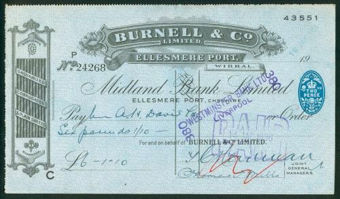 43551
BURNELL & CO
LIMITED
ELLESMERE PORT,
WIRRAL
P
No 24268
19
Midland Bank Limited
ELLESMERE PORT,
TWO PENCE
Pay A. H. David or Order
Six pounds 1/10
WESTMINSTER BANK LTD
LIVERPOOL
380
380
PAID
For and on behalf of BURNELL & CO LIMITED.
£6-1-10
JOINT
GENERAL
MANAGERS
C